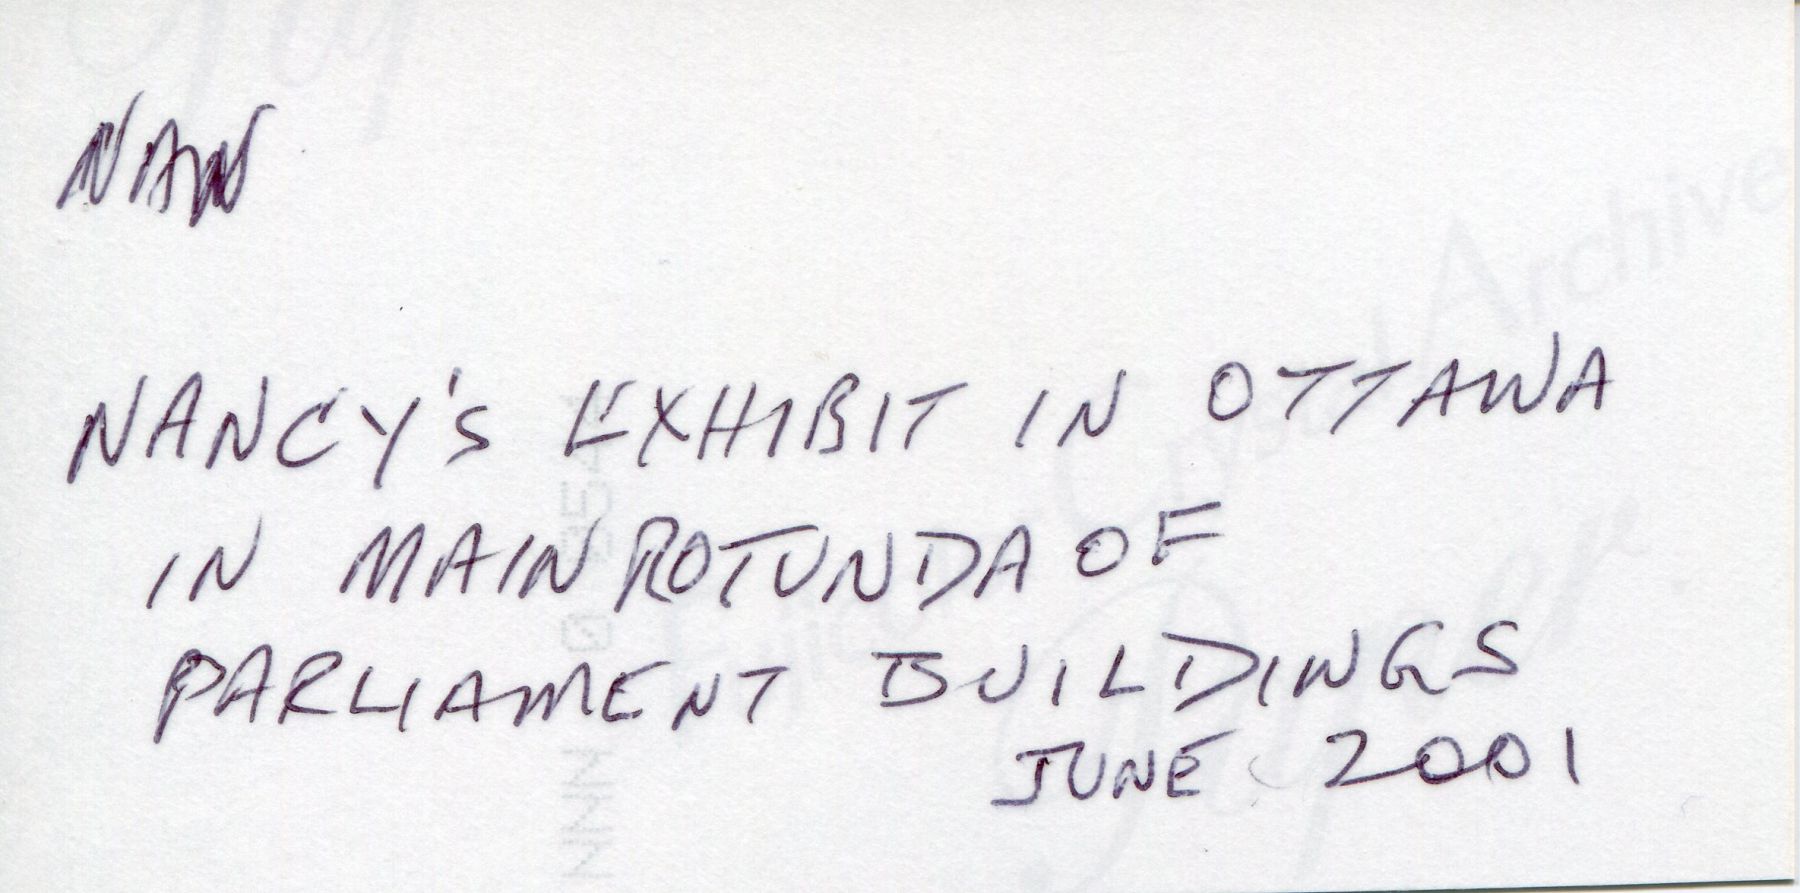 NAN
NANCY'S EXHIBIT IN OTTAWA
IN MAIN ROTUNDA OF
PARLIAMENT BUILDINGS
JUNE 2001
Crystal Archive
Paper